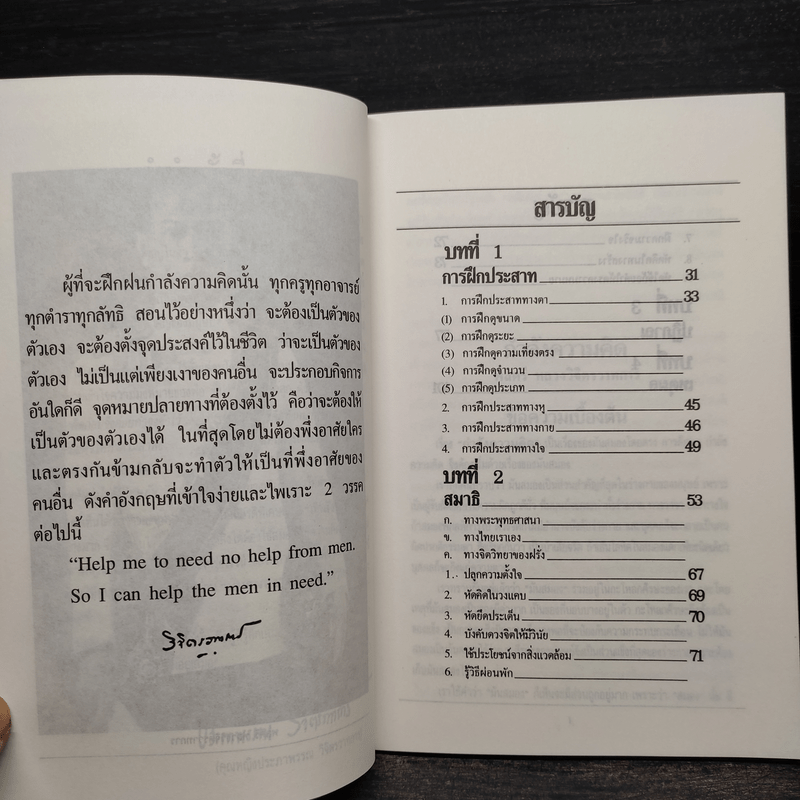 ผู้ที่จะฝึกฝนกำลังความคิดนั้น ทุกครูทุกอาจารย์
ทุกตำราทุกลัทธิ สอนไว้อย่างหนึ่งว่า จะต้องเป็นตัวของ
ตัวเอง จะต้องตั้งจุดประสงค์ไว้ในชีวิต ว่าจะเป็นตัวของ
ตัวเอง ไม่เป็นแต่เพียงเงาของคนอื่น จะประกอบกิจการ
อันใดก็ดี จุดหมายปลายทางที่ต้องตั้งไว้ คือว่าจะต้องให้
เป็นตัวของตัวเองได้ ในที่สุดโดยไม่ต้องพึ่งอาศัยใคร
และตรงกันข้ามกลับจะทำตัวให้เป็นที่พึ่งอาศัยของ
คนอื่น ดังคำอังกฤษที่เข้าใจง่ายและไพเราะ 2 วรรค
ต่อไปนี้
“Help me to need no help from men.
So I can help the men in need.”
สารบัญ
บทที่ 1
การฝึกประสาท 31
1. การฝึกประสาททางตา 33
(1) การฝึกดูขนาด
(2) การฝึกดูระยะ
(3) การฝึกดูความเที่ยงตรง
(4) การฝึกดูจำนวน
(5) การฝึกดูประเภท
2. การฝึกประสาททางหู 45
3. การฝึกประสาททางกาย 46
4. การฝึกประสาททางใจ 49
บทที่ 2
สมาธิ 53
ก. ทางพระพุทธศาสนา
ข. ทางไทยเราเอง
ค. ทางจิตวิทยาของฝรั่ง
1. ปลุกความตั้งใจ 67
2. หัดคิดในวงแคบ 69
3. หัดยึดประเด็น 70
4. บังคับดวงจิตให้มีวินัย
5. ใช้ประโยชน์จากสิ่งแวดล้อม 71
6. รู้วิธีผ่อนพัก